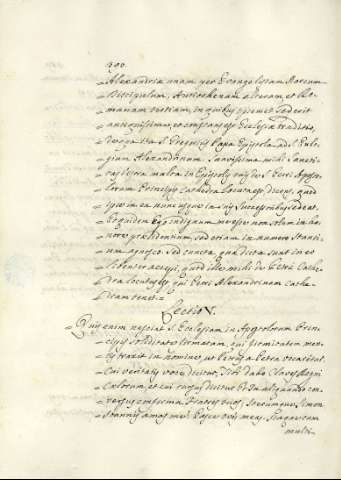 200.
Alexandriæ unam per Evangelistam Marcum
Discipulum, Antiochenam alteram, et Ro-
manam tertiam, in quibus ipsemet sederit
antiquissima, et constans est Ecclesiæ traditio,
de qua ita S. Gregorius Papa Epistola ad S. Eulo-
gium Alexandrinum. Suavissima mihi Sancti-
tas vestra multa in Epistolis suis de S. Petri Aposto-
lorum Principis cathedra locuta est dicens, quod
ipse in ea nunc usque in suis Successoribus sedeat.
Et quidem ego indignum me esse non solum in ho-
nore præsidentium, sed etiam in numero Stanti-
um agnosco. Sed cuncta, quæ dicta sunt in eo
libenter accepi, quod ille mihi de Petri Cathe-
dra locutus est, qui Petri Alexandrinam cathe-
dram tenet.
Lectio V.
Quis enim nesciat S. Ecclesiam in Apostolorum Prin-
cipis soliditate firmatam, qui firmitatem men-
tis traxit in nomine, ut Petrus a Petra vocaretur.
Cui veritatis voce dicitur, Tibi dabo Claves Regni
Cælorum, et cui rursus dicitur Et tu aliquando con-
versus confirma Fratres tuos, Iterumque, Simon
Joannis amas me? Pasce oves meas. Itaque cum
multi-